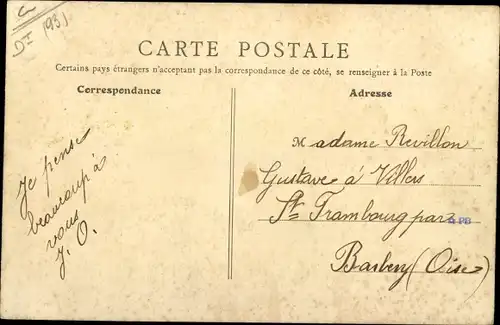 (93)
CARTE POSTALE
Certains pays étrangers n'acceptant pas la correspondance de ce côté, se renseigner à la Poste
Correspondance
Adresse
Je pense
beaucoup à
vous
J. O.
Madame Revillon
Gustave à Villers
St Frambourg par
Barbery (Oise)